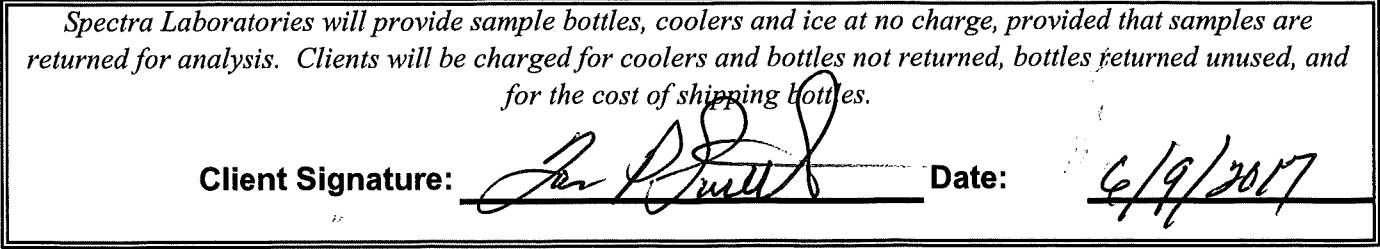 Spectra Laboratories will provide sample bottles, coolers and ice at no charge, provided that samples are
returned for analysis. Clients will be charged for coolers and bottles not returned, bottles returned unused, and
for the cost of shipping bottles.
Client Signature: Date: 6/9/2017